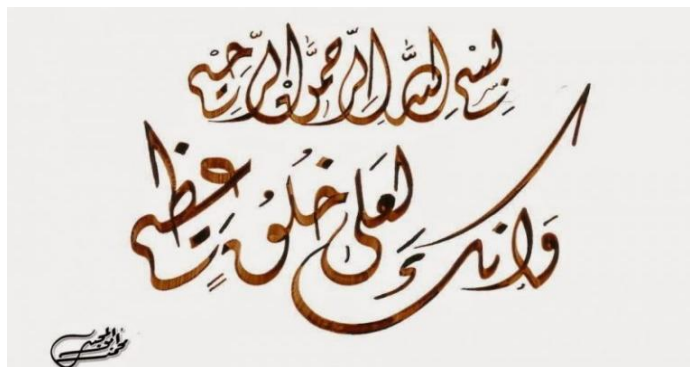 بِسْمِ اللَّهِ الرَّحْمَنِ الرَّحِيمِ
وَإِنَّكَ لَعَلَى خُلُقٍ عَظِيمٍ